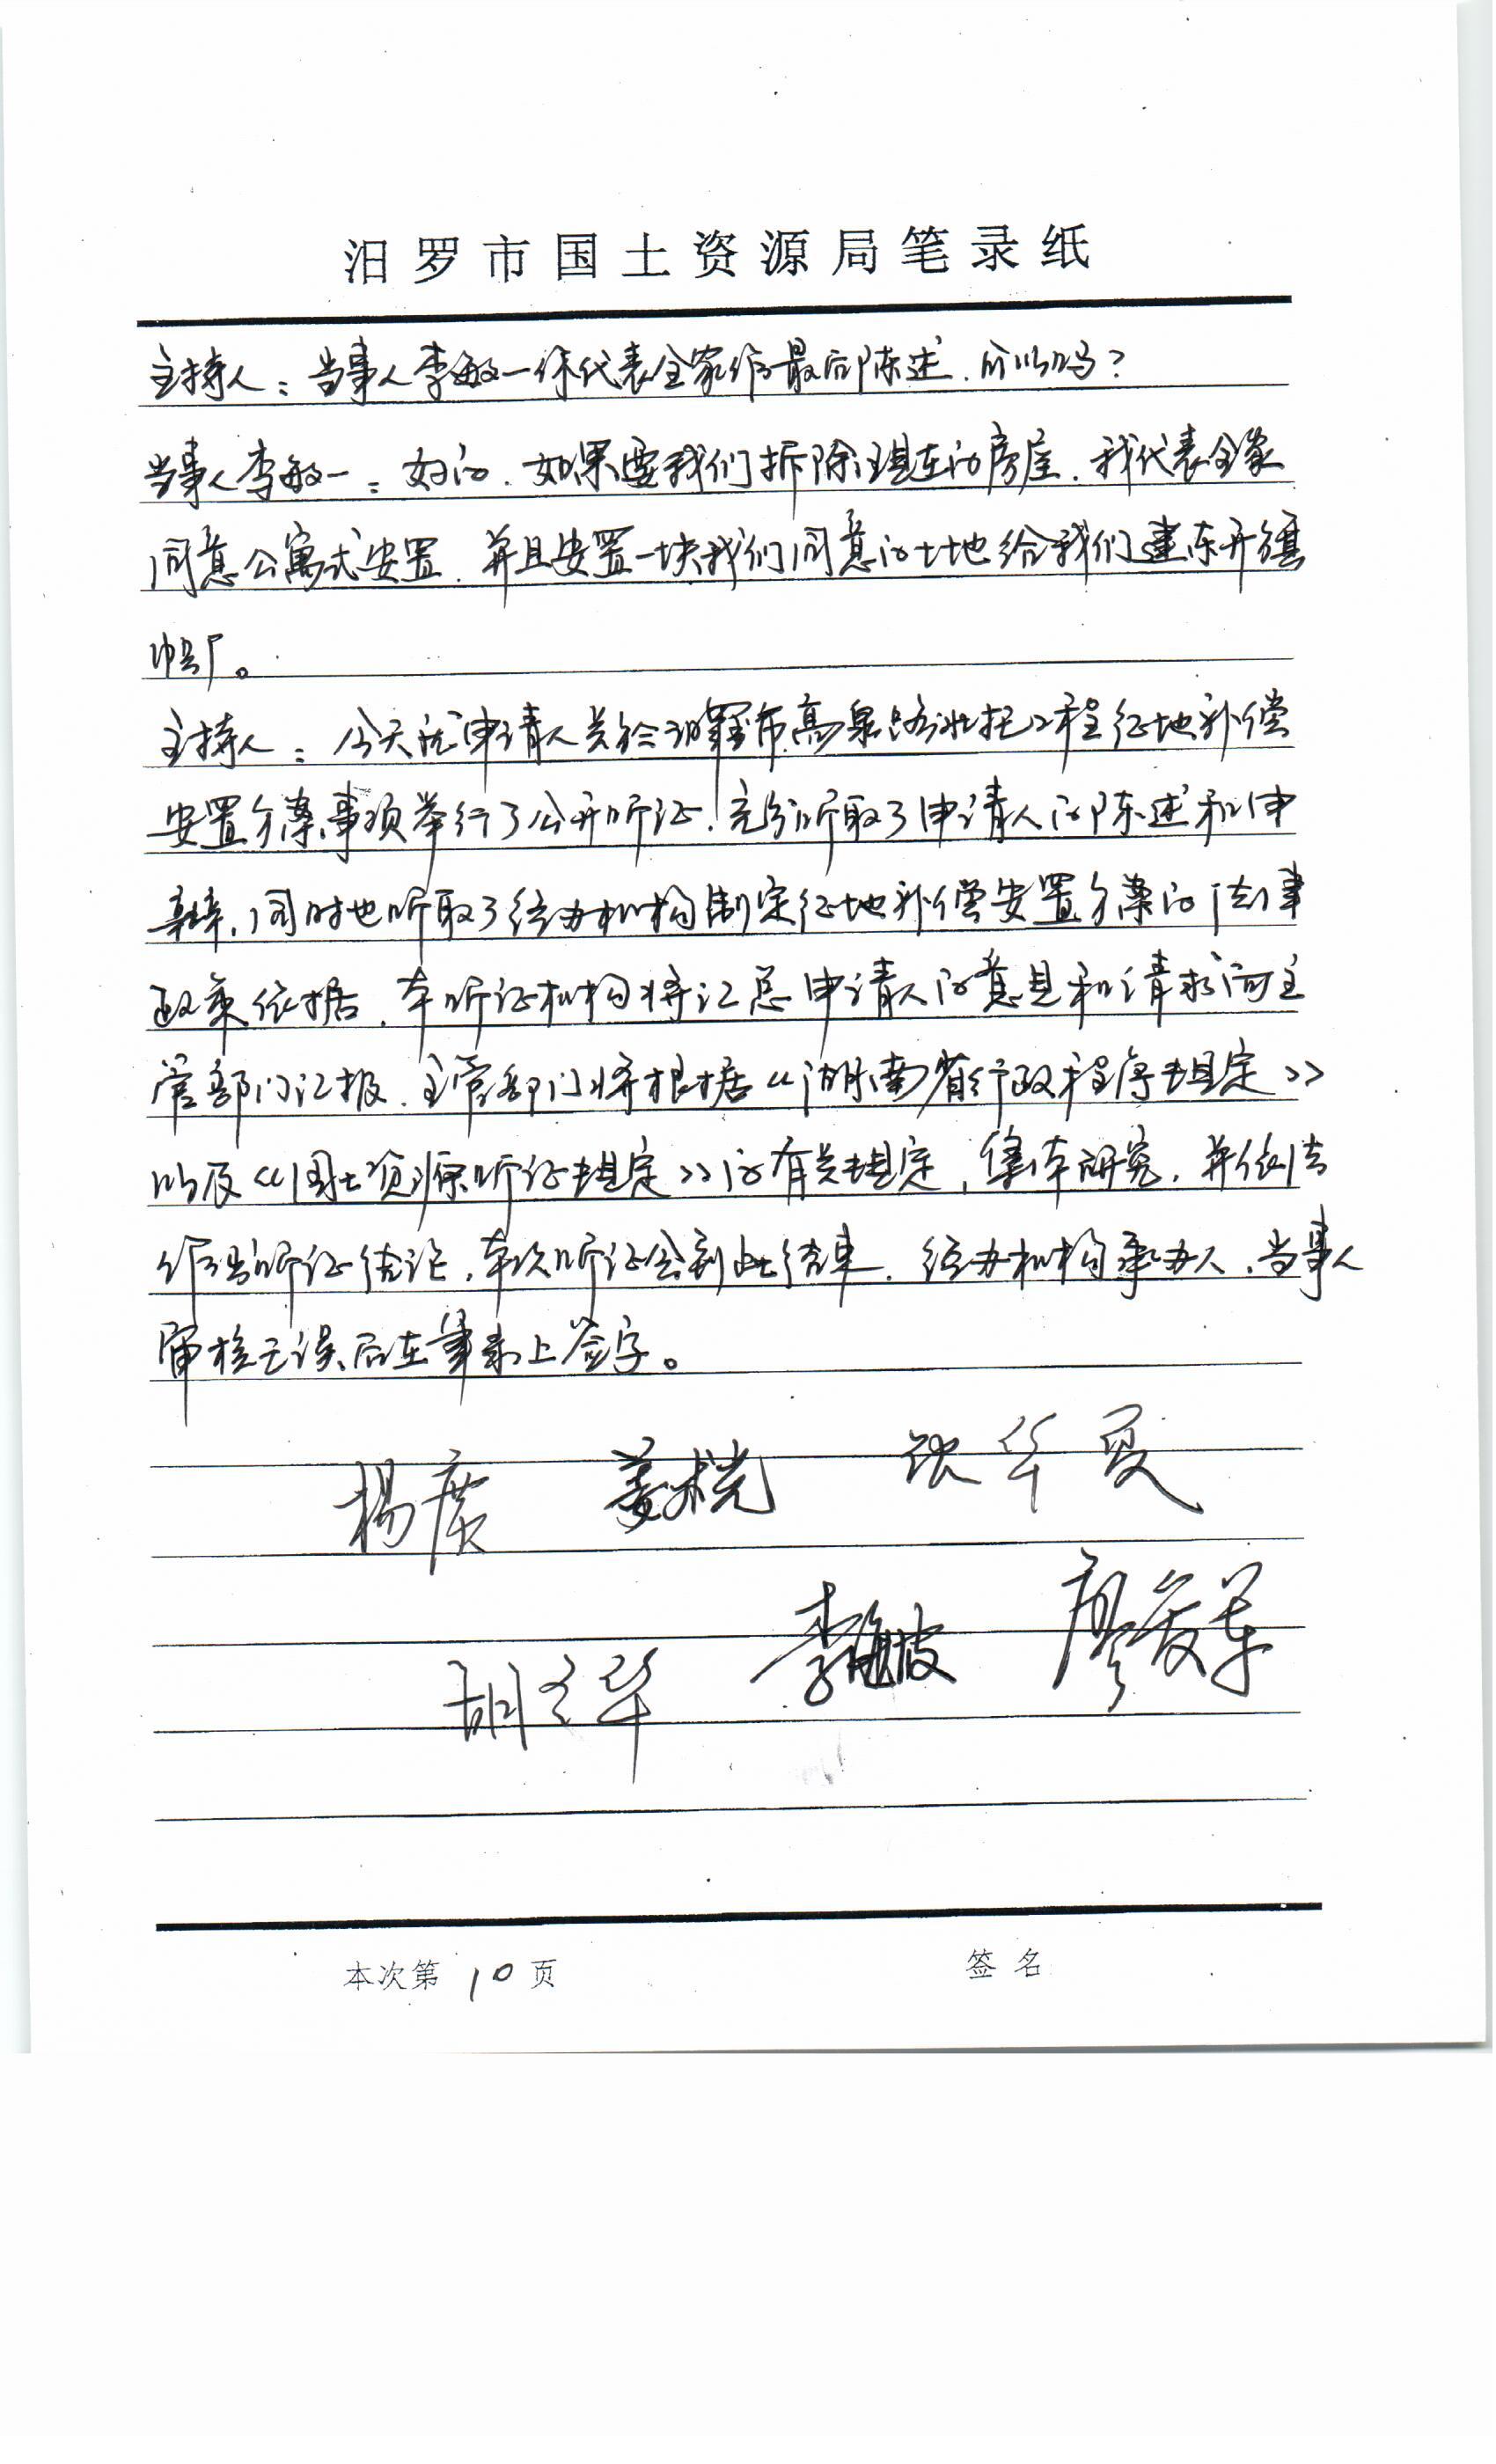 汨罗市国土资源局笔录纸
主持人：当事人李敏一你代表全家作最后陈述，可以吗？
当事人李敏一：好的，如果要我们拆除现在的房屋，我代表全家
同意公寓式安置，并且安置一块我们同意的土地给我们建东升镇
厂。
主持人：今天就申请人关于汨罗市高泉路北托工程征地补偿
安置方案事项举行了公开听证，充分听取了申请人的陈述和申
辩，同时也听取了经办机构制定征地补偿安置方案的法律
政策依据，本听证机构将汇总申请人的意见和请求向主
管部门汇报，主管部门将根据《湖南省行政程序规定》
以及《国土资源听证规定》的有关规定，集体研究，并依法
作出听证结论，本次听证会到此结束，经办机构承办人、当事人
审核无误后在笔录上签字。
杨 姜 张华
胡华 李 廖
本次第10页 签名